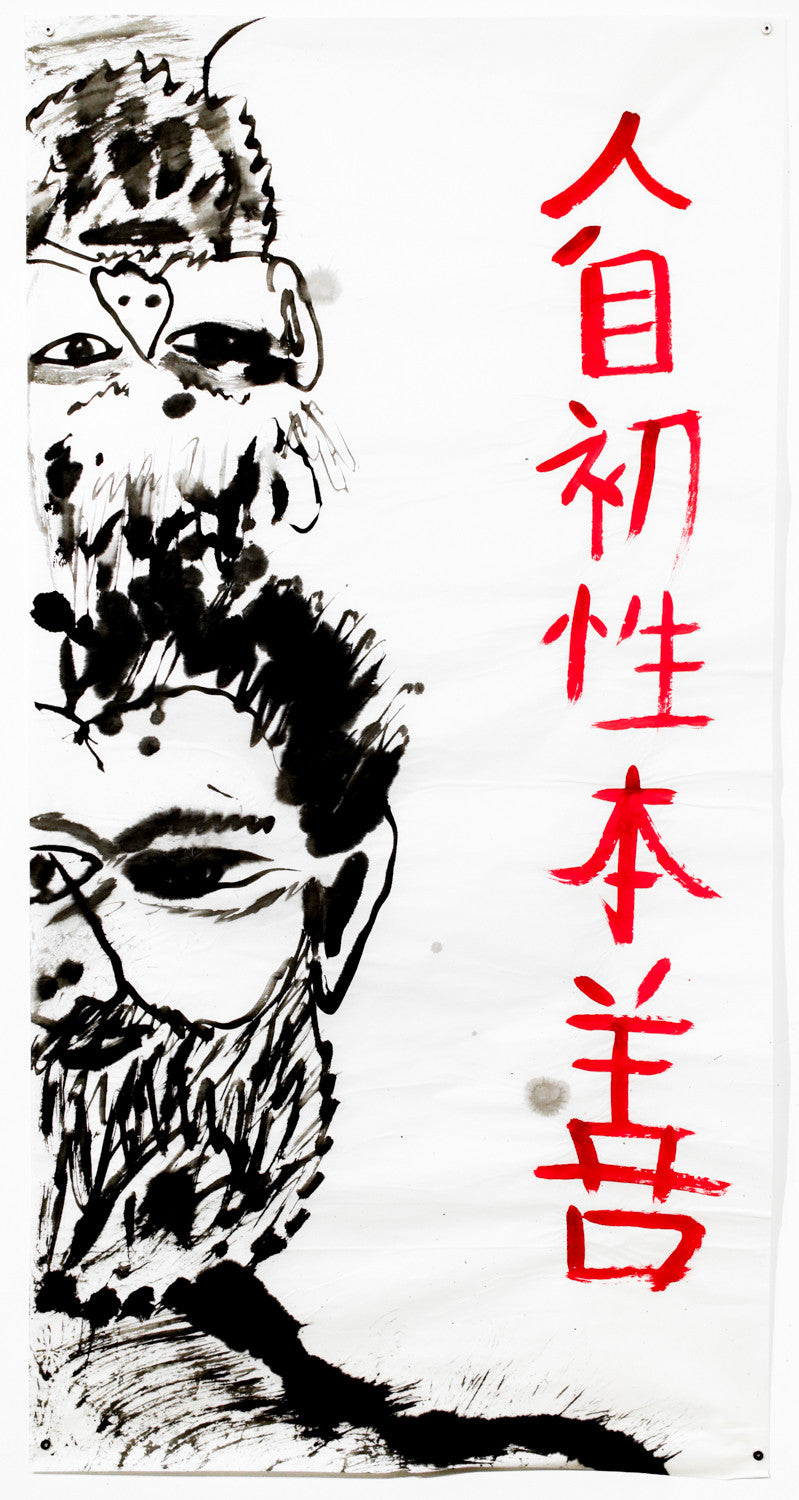 人自初性本善